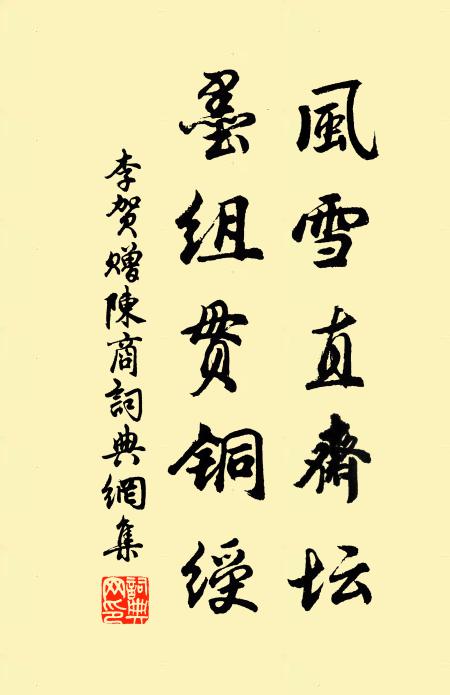 風雪直齋坛
墨组贯铜绶
李贺赠陳商詞典網集
詞典
网印